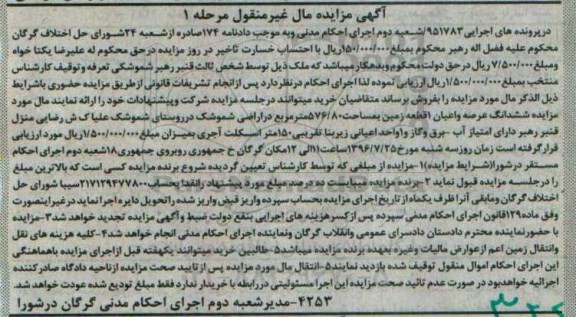 آگهی مزایده مال غیرمنقول مرحله ۱
درپرونده های اجرایی ۹۵۱۷۸۳/شعبه دوم اجرای احکام مدنی وبه موجب دادنامه ۱۷۴صادره ازشعبه ۲۴شورای حل اختلاف گرگان
محکوم علیه فضل اله رهبر محکوم بمبلغ ۱۵۰/۰۰۰/۰۰۰ریال با احتساب خسارت تاخیر در روز مزایده درحق محکوم له علیرضا یکتا خواه
ومبلغ ۷/۵۰۰/۰۰۰ریال در حق دولت محکوم وبدهکار میباشد که ملک ذیل توسط شخص ثالث قنبر رهبر شموشکی تعرفه وتوقیف کارشناس
منتخب بمبلغ ۱/۵۰۰/۰۰۰/۰۰۰ریال ارزیابی نموده لذا اجرای احکام درنظردارد پس ازانجام تشریفات قانونی ازطریق مزایده حضوری باشرایط
ذیل الذکر مال مورد مزایده را بفروش برساند متقاضیان خرید میتوانند درجلسه مزایده شرکت وپیشنهادات خود را ارائه نمایند مال مورد
مزایده ششدانگ عرصه واعیان ۱قطعه زمین بمساحت۵۷۶/۸۰مترمربع دراراضی شموشک درروستای شموشک علیا ک ش رضایی منزل
قنبر رهبر دارای امتیاز آب -برق وگاز و۱واحد اعیانی زیربنا تقریبی ۱۵۰متر اسکلت آجری بمیزان مبلغ ۱/۵۰۰/۰۰۰/۰۰۰ریال مورد ارزیابی
قرارگرفته است زمان روزسه شنبه مورخ۱۳۹۶/۷/۲۵ساعت۱۱الی ۱۲مکان گرگان خ جمهوری روبروی جمهوری۱۸شعبه دوم اجرای احکام
مستقر درشورا(شرایط مزایده)۱-مزایده از مبلغی که توسط کارشناس تعیین گردیده شروع برنده مزایده کسی است که بالاترین مبلغ
را درجلسه مزایده قبول نماید ۲-برنده مزایده میبایست ده درصد مبلغ مورد پیشنهاد رانقدا بحساب۲۱۷۱۲۹۴۷۷۸۰۰۰سیبا شورای حل
اختلاف گرگان ومابقی آنرا ظرف یکماه از تاریخ اجرای مزایده بحساب سپرده واریز قبض واریز شده راتحویل دایره اجرانماید درغیراینصورت
وفق ماده۱۲۹قانون اجرای احکام مدنی سپرده پس ازکسرهزینه های اجرایی بنفع دولت ضبط وآگهی مزایده تجدید خواهد شد۳-مزایده
با حضورنماینده محترم دادستان دادسرای عمومی وانقلاب گرگان ونماینده اجرای احکام مدنی انجام خواهد شد۴-کلیه هزینه های نقل
وانتقال زمین اعم ازعوارض مالیات وغیره بعهده برنده مزایده میباشد۵-طالبین خرید میتوانند یکهفته قبل ازاجرای مزایده باهماهنگی
این اجرای احکام اموال منقول توقیف شده بازدید نمایند۵-انتقال مال مورد مزایده پس از تایید صحت مزایده ازناحیه دادگاه صادرکننده
اجرائیه خواهدبود در صورت عدم تائید صحت مزایده این اجرا مسئولیتی دررابطه با خریدار ندارد فقط مبلغ تودیع شده عودت خواهد شد.
۴۲۵۳-مدیرشعبه دوم اجرای احکام مدنی گرگان درشورا